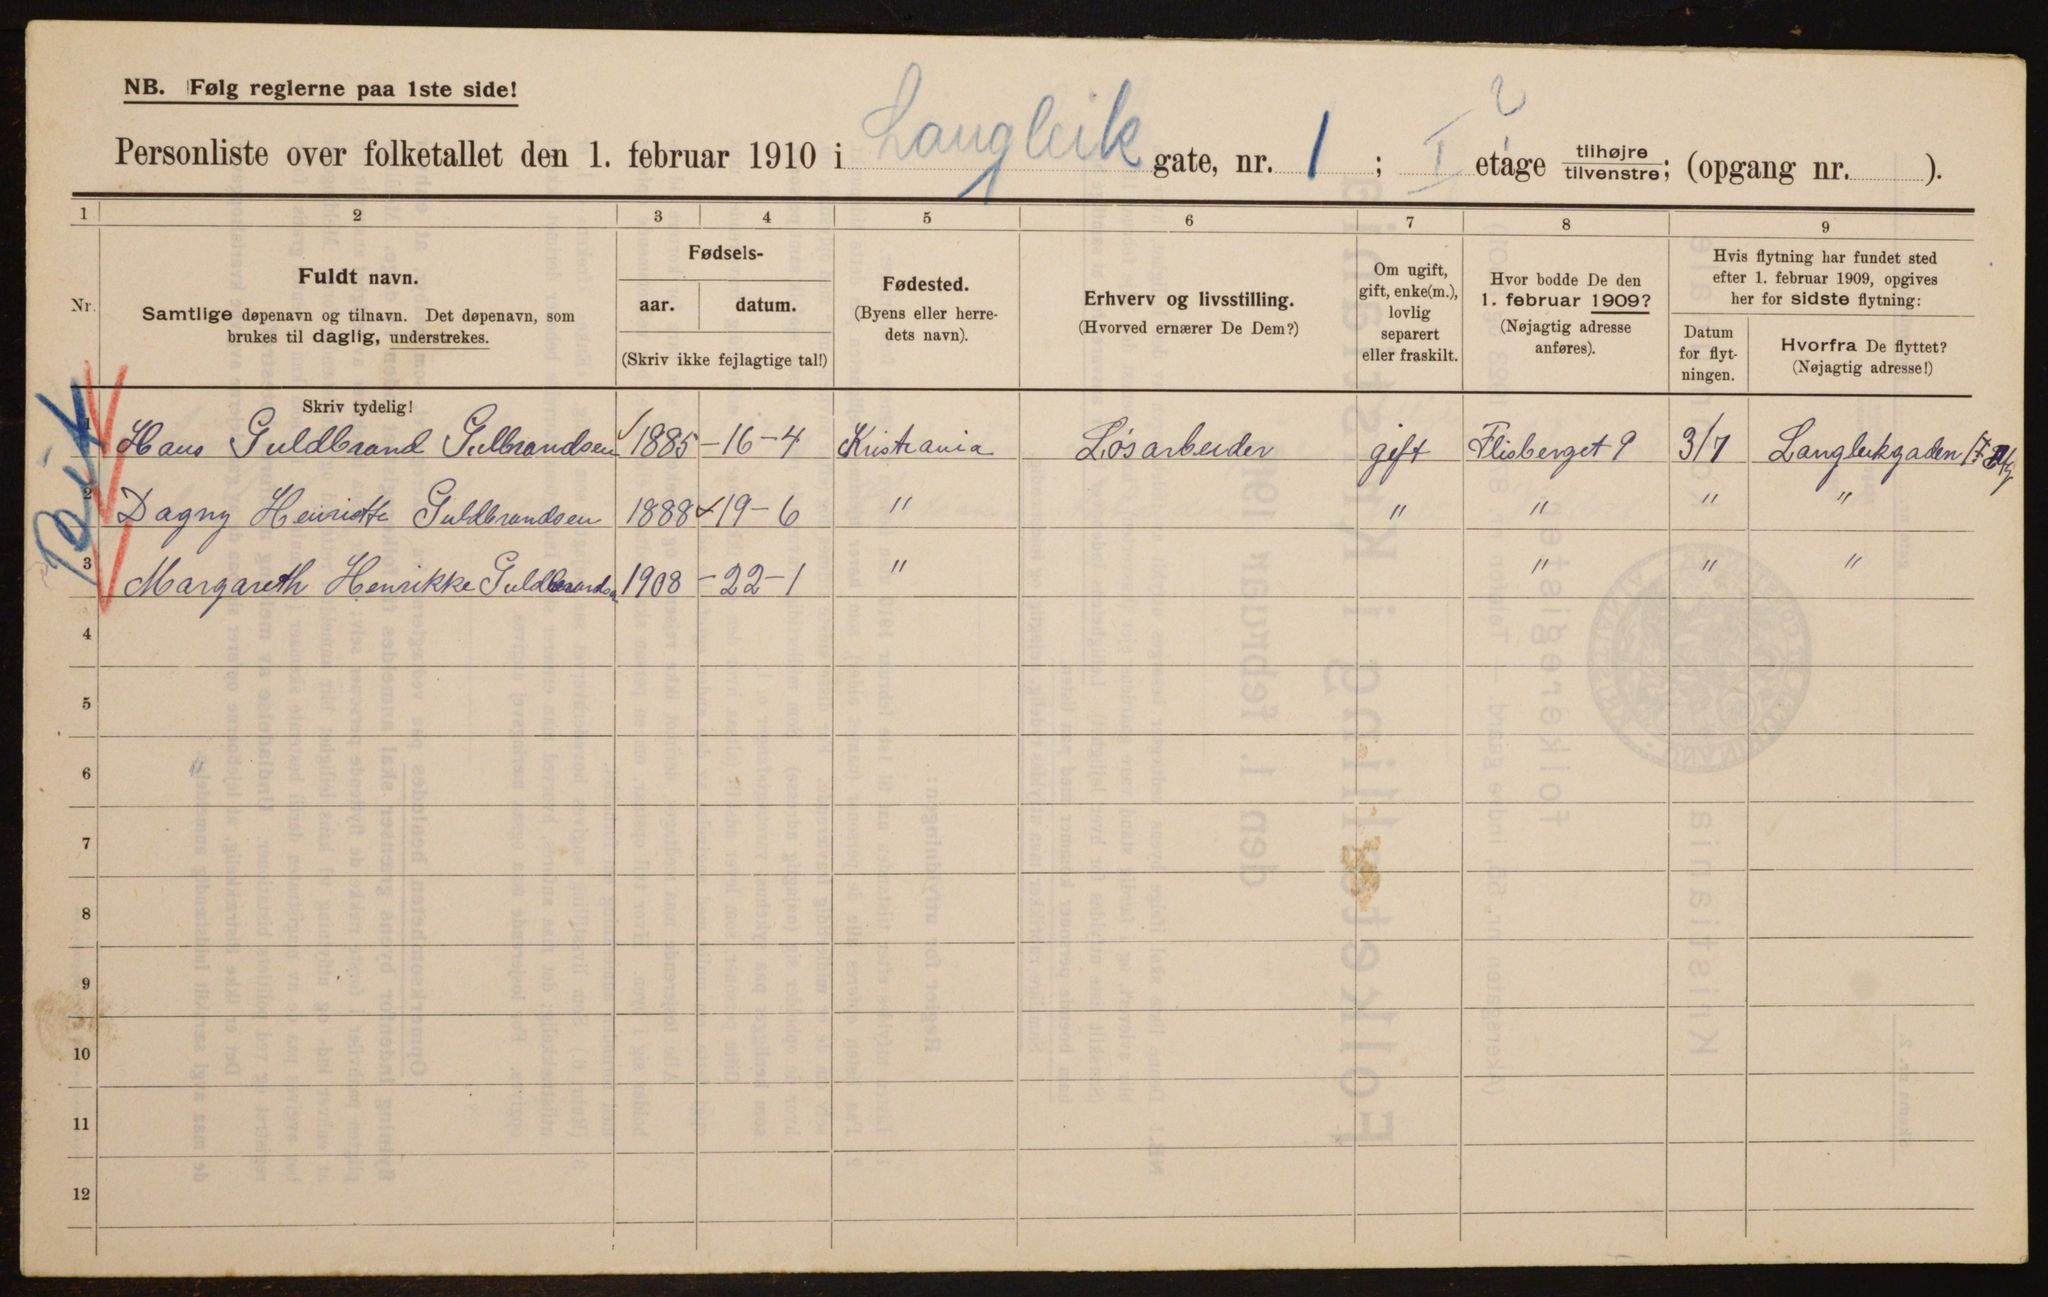 NB. Følg reglerne paa 1ste side!
Personliste over folketallet den 1. februar 1910 i Langleik gate, nr. 1 ; I etage tilhøjre/tilvenstre; (opgang nr. ).
1 2 3 4 5 6 7 8 9
Nr.
Fuldt navn.
Samtlige døpenavn og tilnavn. Det døpenavn, som
brukes til daglig, understrekes.
Fødsels-
aar. datum.
(Skriv ikke fejlagtige tal!)
Fødested.
(Byens eller herre-
dets navn).
Erhverv og livsstilling.
(Hvorved ernærer De Dem?)
Om ugift,
gift, enke(m.),
lovlig
separert
eller fraskilt.
Hvor bodde De den
1. februar 1909?
(Nøjagtig adresse
anføres).
Hvis flytning har fundet sted
efter 1. februar 1909, opgives
her for sidste flytning:
Datum
for flyt-
ningen.
Hvorfra De flyttet?
(Nøjagtig adresse!)
Skriv tydelig!
1 Hans Guldbrand Gulbrandsen 1885 - 16 - 4 Kristiania Løsarbeider gift Flisberget 9 3/7 Langleikgaden 17
2 Dagny Henriette Guldbrandsen 1888 - 19 - 6 " " " " "
3 Margareth Henrikke Guldbrandsen 1908 - 22 - 1 " " " "
4
5
6
7
8
9
10
11
12